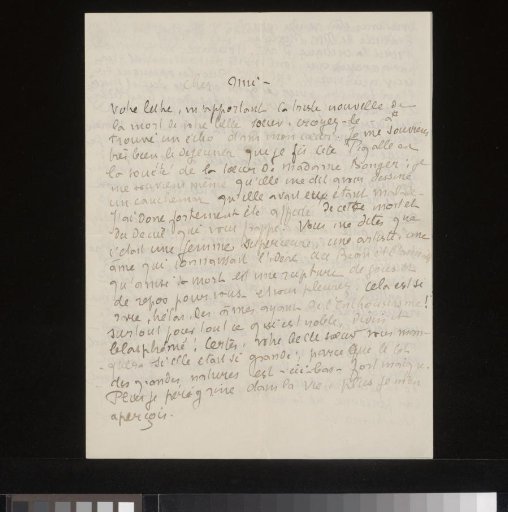 Cher Ami -
Votre lettre, m'apportant la triste nouvelle de
la mort de votre belle soeur - croyez-le - a
trouvé un écho dans mon coeur. Je me souviens
très bien le déjeuner que je fis Cité Pigalle en
la société de la soeur de madame Bonger; je
me souviens même qu'elle me dit avoir dessiné
un cauchemar qu'elle avait eu étant malade.
J'ai donc fortement été affecté de cette mort et
du deuil qui vous frappe. Vous me dites que
c'était une femme supérieure, une artiste, une
âme qui connaissait l'Idéal du Beau et
qu'ainsi sa mort est une rupture de
de repos pour vous et vous pleurez. Cela est si
rare, hélas, des âmes ayant de l'Enthousiasme!
surtout pour tout ce qui est noble,
blasphémé! Certes, votre belle soeur vous man-
quera si elle était si grande; parce que le lot
des grandes natures est - ici-bas - fort maigre.
Plus je pérégrine dans la vie, plus je m'en
aperçois.